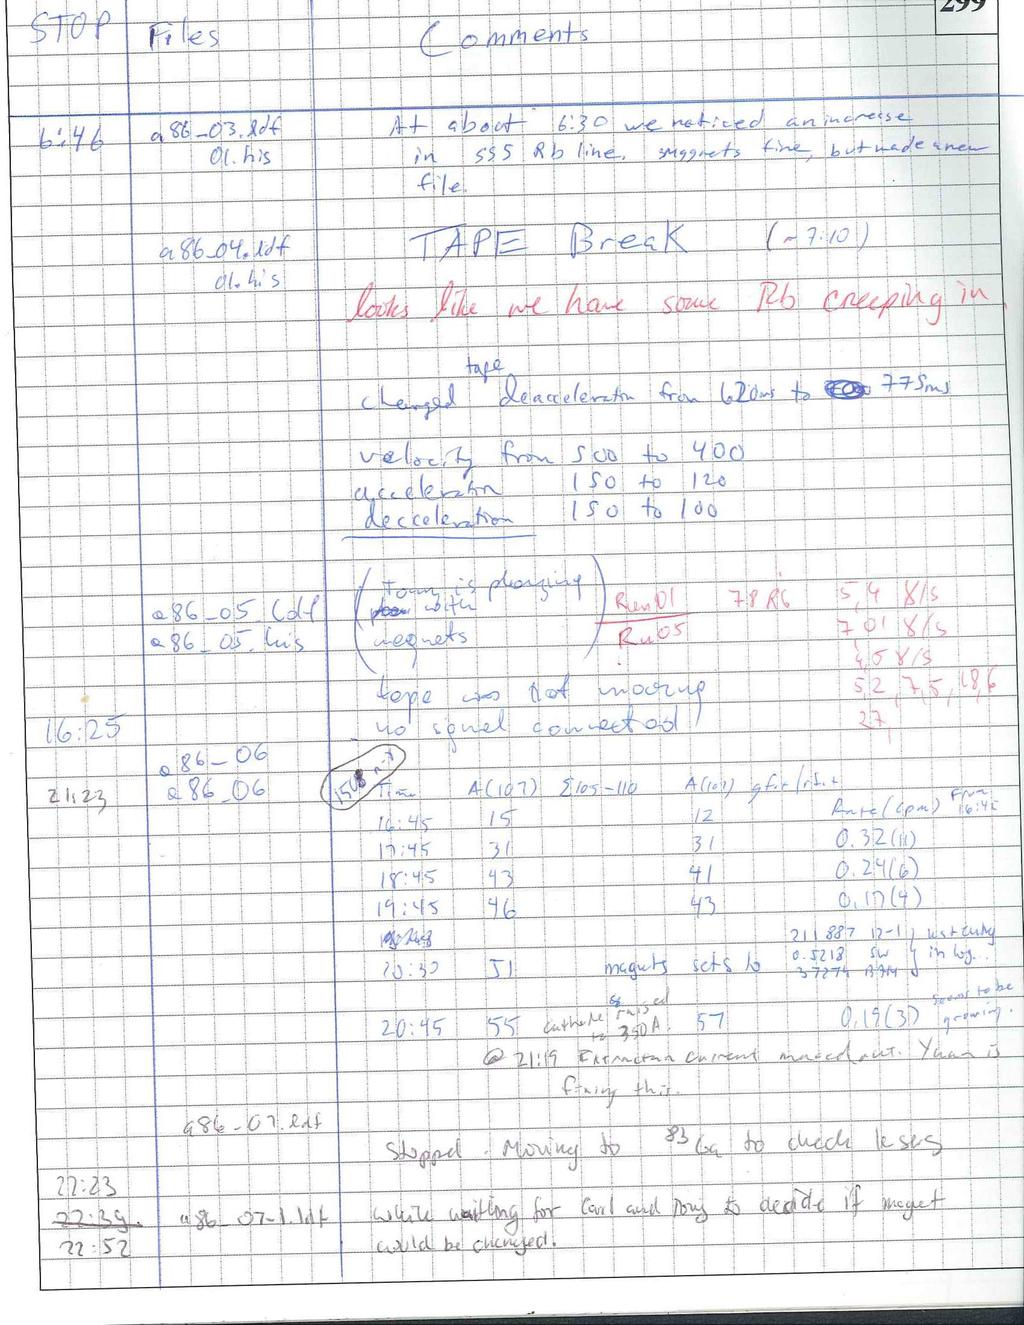 299
STOP Files Comments
6:46 a86_03.ldf At about 6:30 we noticed an increase
01.his in 555 Rb line. magnets fine, but made a new
file.
a86_04.ldf TAPE Break (~7:10)
01.his
looks like we have some Rb creeping in
tape
changed deacceleration from 620ms to 775ms
velocity from 500 to 400
acceleration 150 to 120
decceleration 150 to 100
(Tom is playing Run01 78 5,4 γ/s
a86_05.ldf with Ru05 7,01 γ/s
a86_05.his magnets) 4,5 γ/s
tape was not moving 5,2, 7,5,
16:25 no signal connected 27,
a86_06
21:23 a86_06 Time A(107) Σ105-110 A(107) Rate (cpm) From 16:42
16:45 15 12
17:45 31 31 0.32(11)
18:45 43 41 0.24(6)
19:45 46 43 0.17(4)
20:30 51 magnets sets to 211887 in log...
0.5218 SW
37274
20:45 55 cathode raised to 350A. 57 0,19(3) seems to be growing.
@ 21:19 Extraction current maxed out. Yuan is
fixing this.
a86_07.ldf
Stopped. Moving to 83Ga to check lasers
22:23
22:39. a86_07-1.ldf while waiting for Carl and to decide if magnet
22:52 would be changed.